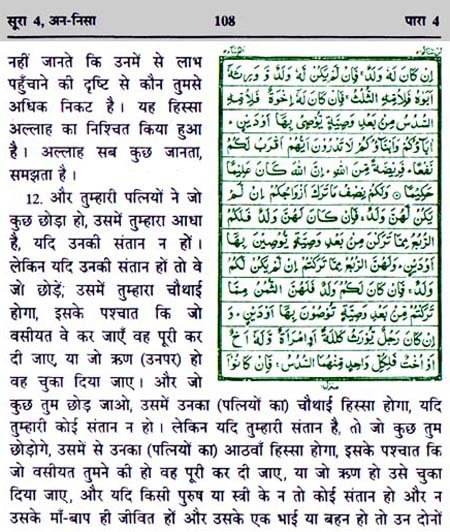 सूरा 4, अन-निसा 108 पारा 4
नहीं जानते कि उनमें से लाभ
पहुँचाने की दृष्टि से कौन तुमसे
अधिक निकट है। यह हिस्सा
अल्लाह का निश्चित किया हुआ
है। अल्लाह सब कुछ जानता,
समझता है।
12. और तुम्हारी पत्नियों ने जो
कुछ छोड़ा हो, उसमें तुम्हारा आधा
है, यदि उनकी संतान न हों।
लेकिन यदि उनकी संतान हों तो वे
जो छोड़ें, उसमें तुम्हारा चौथाई
होगा, इसके पश्चात कि जो
वसीयत वे कर जाएँ वह पूरी कर
दी जाए, या जो ऋण (उनपर) हो
वह चुका दिया जाए। और जो
कुछ तुम छोड़ जाओ, उसमें उनका (पत्नियों का) चौथाई हिस्सा होगा, यदि
तुम्हारी कोई संतान न हो। लेकिन यदि तुम्हारी संतान है, तो जो कुछ तुम
छोड़ोगे, उसमें से उनका (पत्नियों का) आठवाँ हिस्सा होगा, इसके पश्चात कि
जो वसीयत तुमने की हो वह पूरी कर दी जाए, या जो ऋण हो उसे चुका
दिया जाए, और यदि किसी पुरुष या स्त्री के न तो कोई संतान हो और न
उसके माँ-बाप ही जीवित हों और उसके एक भाई या बहन हो तो उन दोनों
اِنْ كَانَ لَهٗ وَلَدٌ ۚ فَاِنْ لَّمْ يَكُنْ لَّهٗ وَلَدٌ وَّ وَرِثَهٗٓ
اَبَوٰهُ فَلِاُمِّهِ الثُّلُثُ ۚ فَاِنْ كَانَ لَهٗٓ اِخْوَةٌ فَلِاُمِّهِ
السُّدُسُ مِنْۢ بَعْدِ وَصِيَّةٍ يُّوْصِيْ بِهَآ اَوْ دَيْنٍ ؕ
اٰبَآؤُكُمْ وَاَبْنَآؤُكُمْ لَا تَدْرُوْنَ اَيُّهُمْ اَقْرَبُ لَكُمْ
نَفْعًا ؕ فَرِيْضَةً مِّنَ اللّٰهِ ؕ اِنَّ اللّٰهَ كَانَ عَلِيْمًا
حَكِيْمًا ۝ وَلَكُمْ نِصْفُ مَا تَرَكَ اَزْوَاجُكُمْ اِنْ لَّمْ
يَكُنْ لَّهُنَّ وَلَدٌ ۚ فَاِنْ كَانَ لَهُنَّ وَلَدٌ فَلَكُمُ
الرُّبُعُ مِمَّا تَرَكْنَ مِنْۢ بَعْدِ وَصِيَّةٍ يُّوْصِيْنَ بِهَآ
اَوْ دَيْنٍ ؕ وَلَهُنَّ الرُّبُعُ مِمَّا تَرَكْتُمْ اِنْ لَّمْ يَكُنْ لَّكُمْ
وَلَدٌ ۚ فَاِنْ كَانَ لَكُمْ وَلَدٌ فَلَهُنَّ الثُّمُنُ مِمَّا
تَرَكْتُمْ مِّنْۢ بَعْدِ وَصِيَّةٍ تُوْصُوْنَ بِهَآ اَوْ دَيْنٍ ؕ وَاِنْ
كَانَ رَجُلٌ يُّوْرَثُ كَلٰلَةً اَوِ امْرَاَةٌ وَّلَهٗٓ اَخٌ
اَوْ اُخْتٌ فَلِكُلِّ وَاحِدٍ مِّنْهُمَا السُّدُسُ ۚ فَاِنْ كَانُوْٓا
منزل